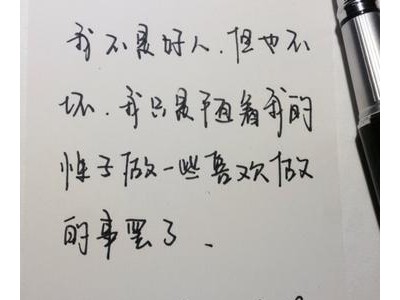 我不是好人.但也不
坏.我只是随着我的
性子做一些喜欢做
的事罢了.